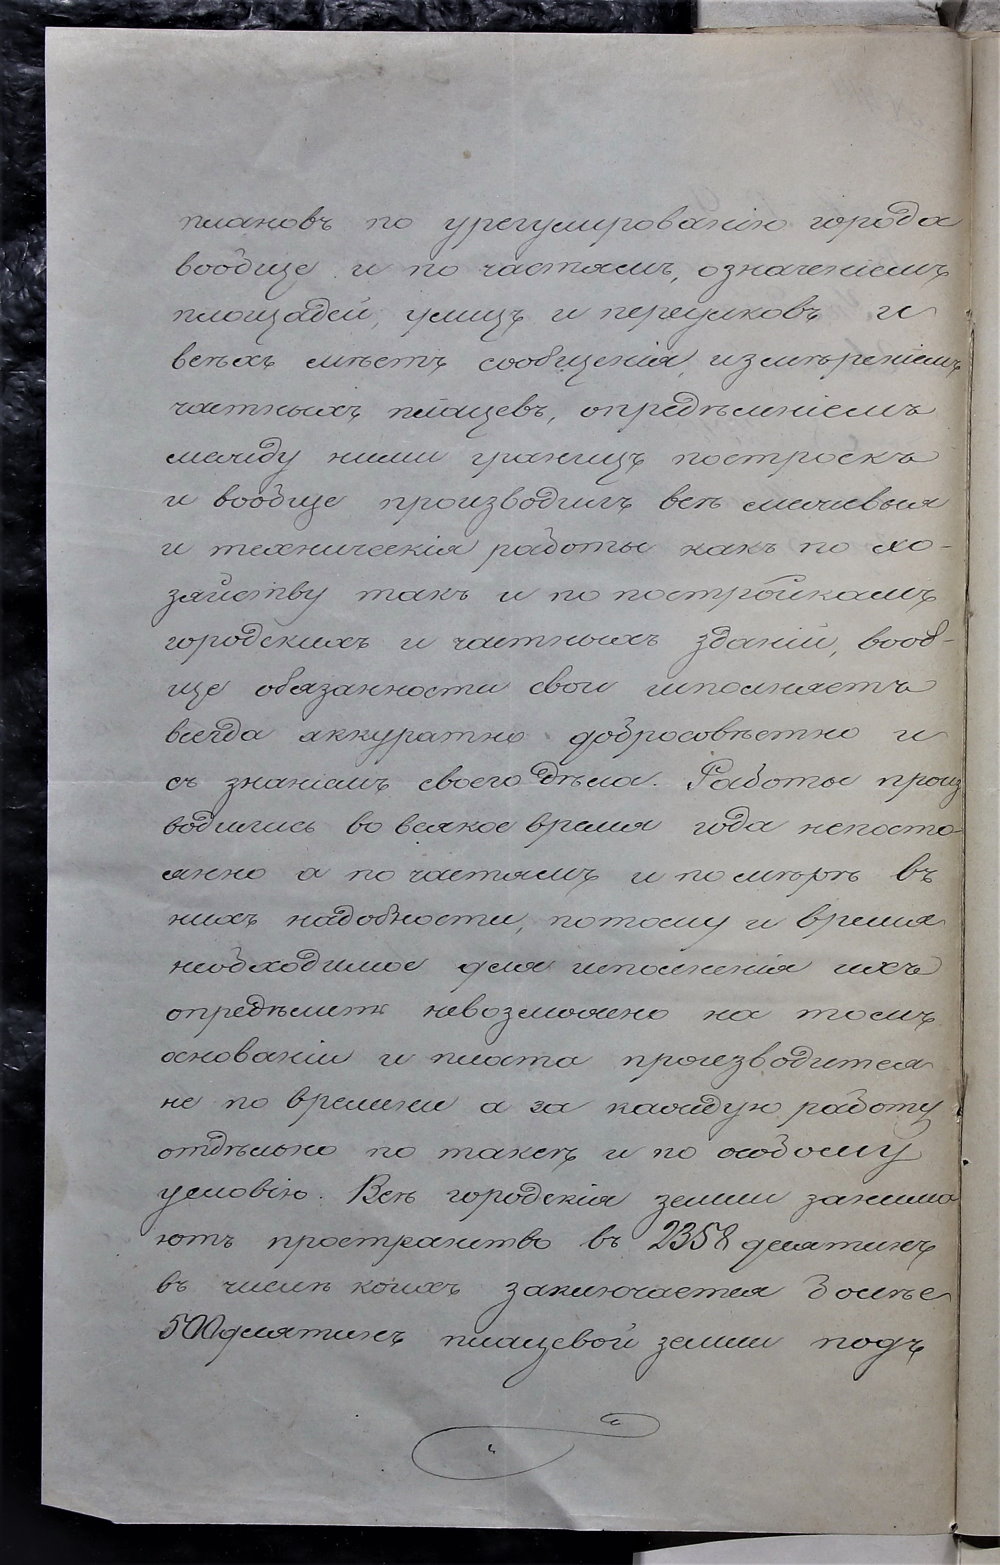 плановъ по урегулированію города
вообще и по частямъ, означеніемъ
площадей, улицъ и переулковъ и
всѣхъ мѣстъ сообщенія, измѣреніемъ
частныхъ плацевъ, опредѣленіемъ
между ними границъ построекъ
и вообще производилъ всѣ межевыя
и техническія работы какъ по хо-
зяйству такъ и по постройкамъ
городскихъ и частныхъ зданій, вооб-
ще обязанности свои исполняетъ
всегда аккуратно добросовѣстно и
съ знаніемъ своего дѣла. Работы произ
водились во всякое время года непосто-
янно а по частямъ и по мѣрѣ въ
нихъ надобности, потому и время
необходимое для исполненія ихъ
опредѣлить невозможно на томъ
основаніи и плата производится
не по времени а за каждую работу
отдѣльно по таксѣ и по особому
условію. Всѣ городскія земли занима
ютъ пространство въ 2358 десятинъ
въ числѣ коихъ заключается болѣе
500 десятинъ плацевой земли подъ